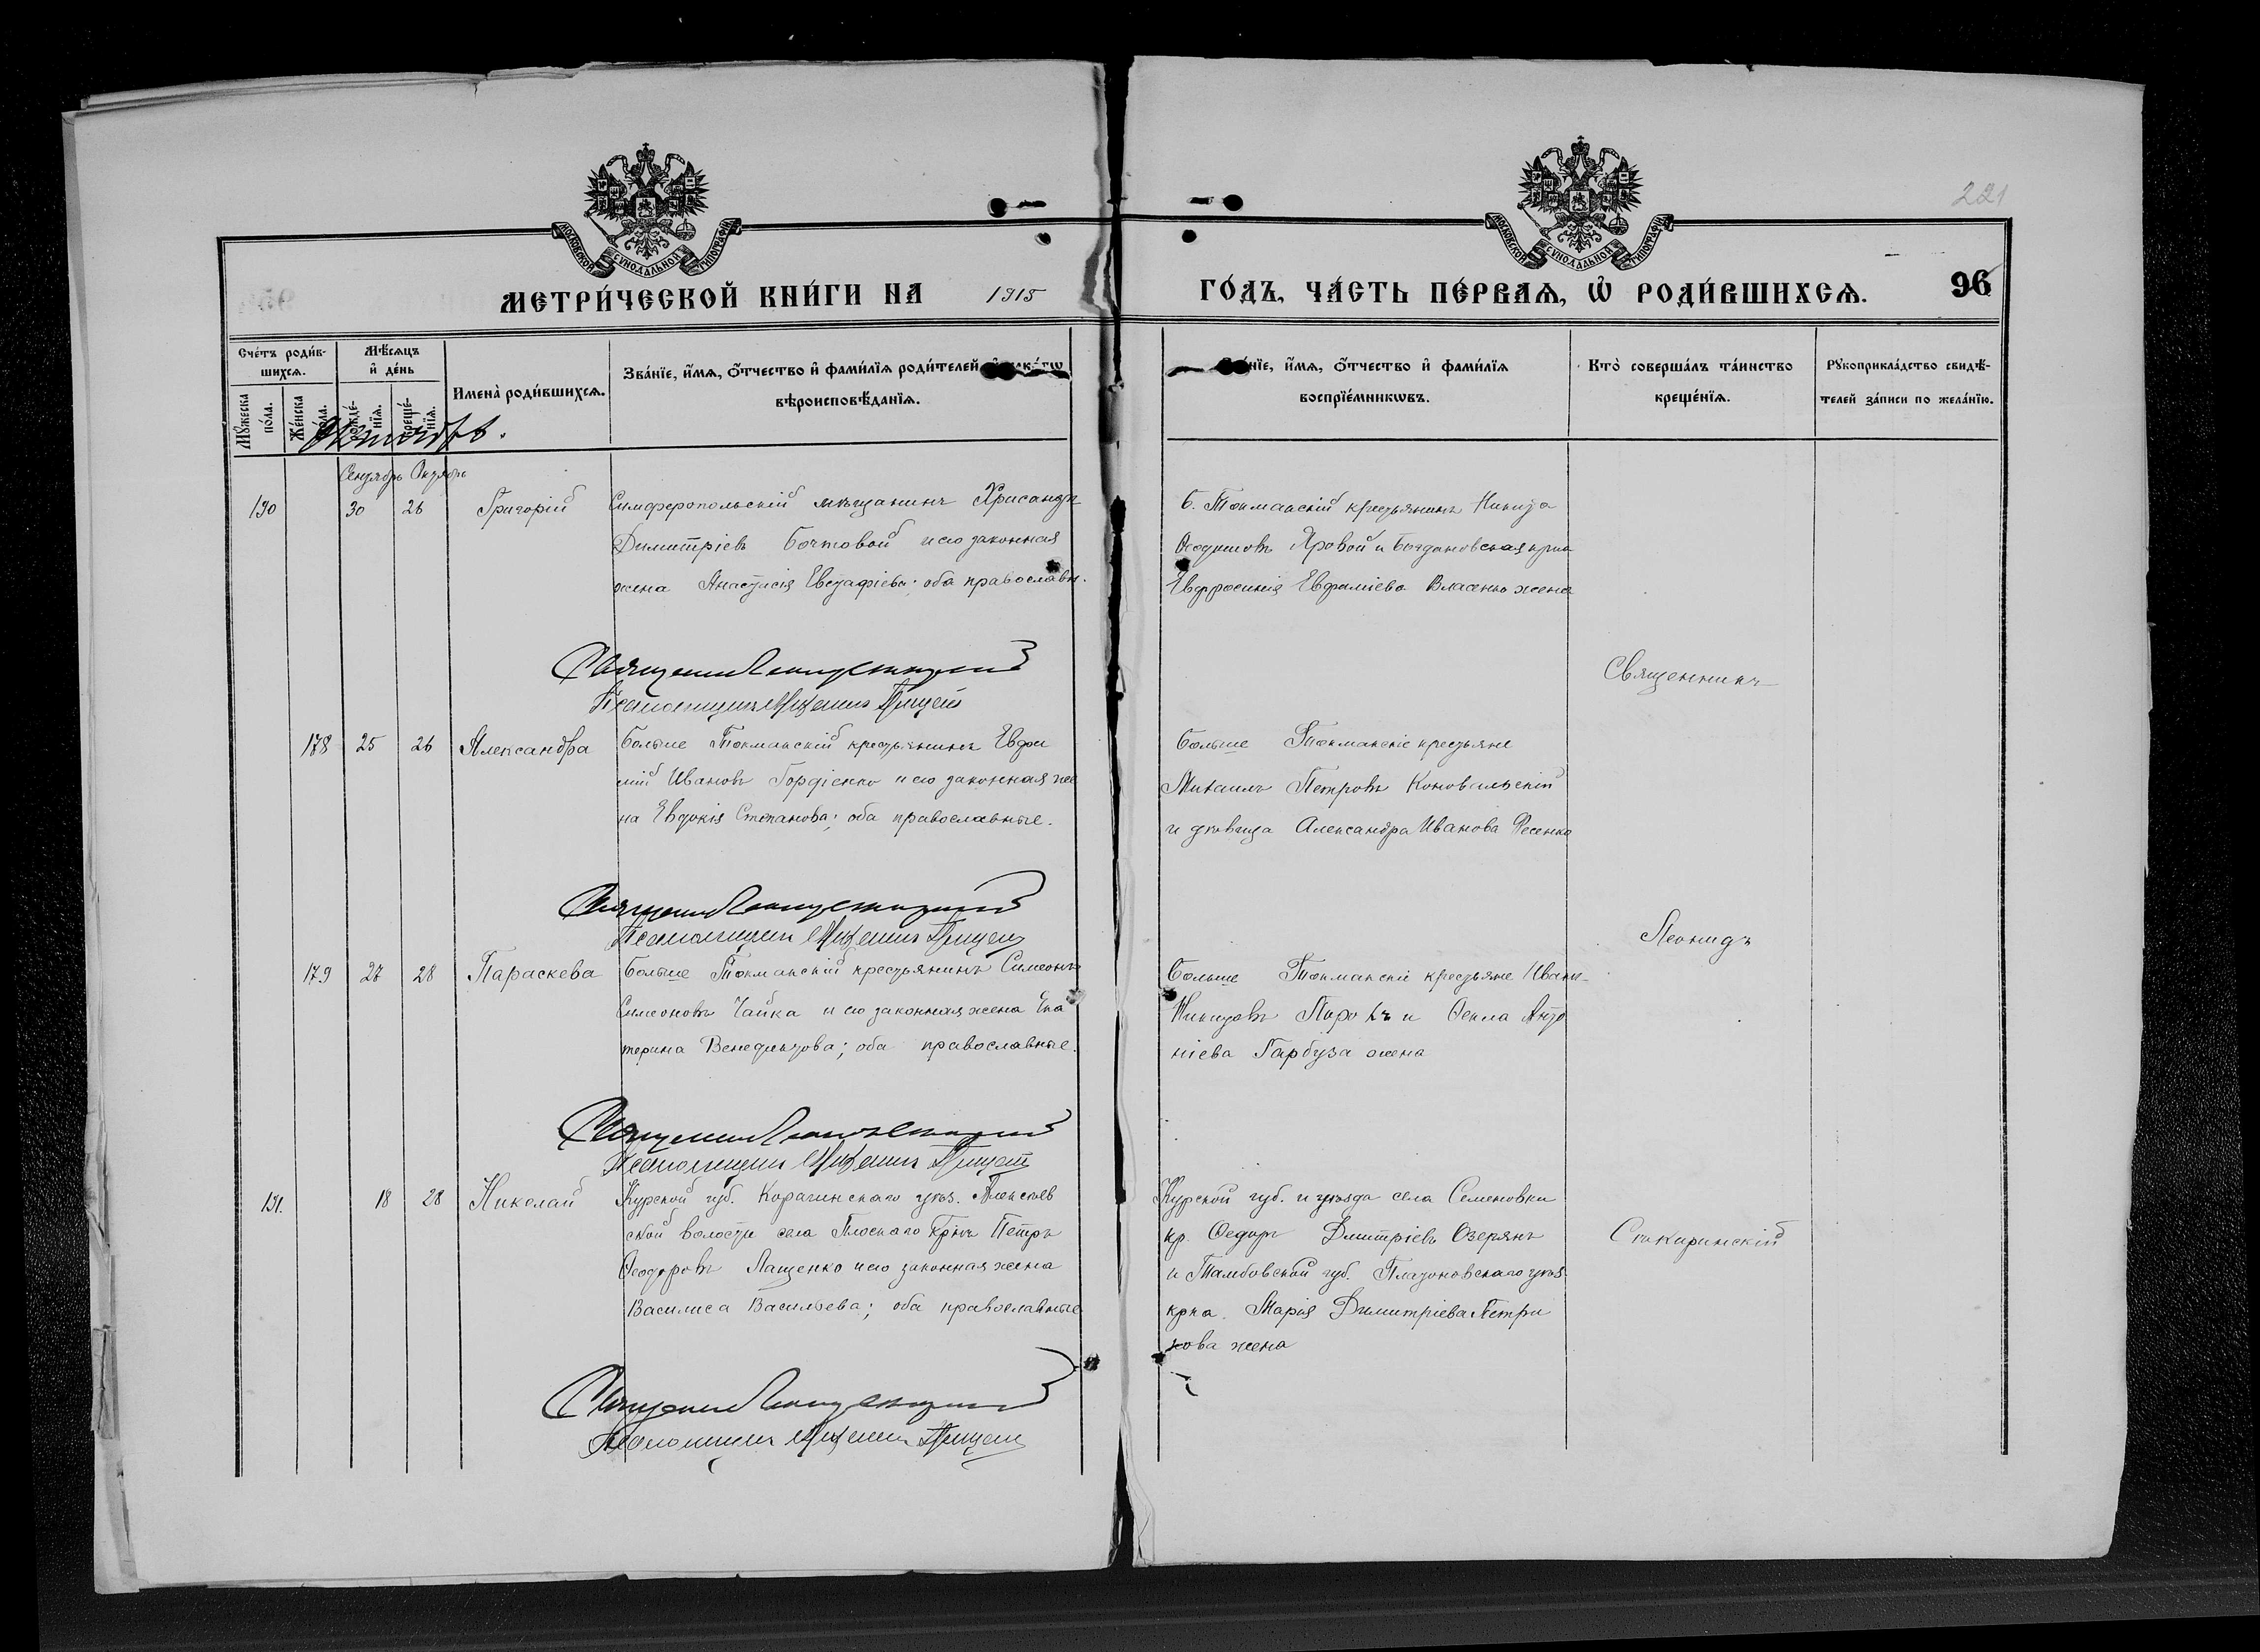 221
МОСКОВСКОЙ СѴНОДАЛЬНОЙ ТИПОГРАФІИ
МОСКОВСКОЙ СѴНОДАЛЬНОЙ ТИПОГРАФІИ
МЕТРИ́ЧЕСКОЙ КНИ́ГИ НА 1915
ГО́ДЪ, ЧА́СТЬ ПЕ́РВАѦ, Ѡ҆ РОДИ́ВШИХСѦ. 96
Сче́тъ роди́в-
шихсѧ.
Му́жеска по́ла.
Же́нска по́ла.
Мѣ́сѧцъ
и҆ де́нь
рожде́-нїѧ.
креще́-нїѧ.
Имена̀ роди́вшихсѧ.
Зва́нїе, и҆́мѧ, ѻ҆́тчество и҆ фами́лїѧ роди́телей
вѣроисповѣ́данїѧ.
и҆́мѧ, ѻ҆́тчество и҆ фами́лїѧ
воспрїе́мникѡвъ.
Кто̀ соверша́лъ та́инство
креще́нїѧ.
Рꙋкоприкла́дство свидѣ́-
телей за́писи по жела́нїю.
Октябрь.
Сентябрь Октябрь
190 30 26 Григорій Симферопольскій мѣщанинъ Хрисандъ
Димитріевъ и его законная
жена Анастасія Евстафіева; оба православн.
Б. Токмакскій крестьянинъ Никита
Яровой и Богдановская крка
Евфросинія Власенко жена
Священникъ
Псаломщикъ
Священникъ
178 25 26 Александра Больше Токмакскій крестьянинъ Евфи
мій Ивановъ Гордіенко и его законная же
на Евдокія Степанова; оба православные.
Больше Токмакскіе крестьяне
Михаилъ Петровъ Коновальскій
и дѣвица Александра Иванова Фесенко
Священникъ
Псаломщикъ
Леонидъ
179 27 28 Параскева Больше Токмакскій крестьянинъ Симеонъ
Симеоновъ Чайка и его законная жена Ека
терина Венедиктова; оба православные.
Больше Токмакскіе крестьяне Иванъ
Никитовъ и Фекла Анто
ніева Гарбуза жена
Священникъ
Псаломщикъ
191. 18 28 Николай Курской губ. уѣз. Алексѣев
ской волости села Плоскаго крнъ Петръ
Феодоровъ Лащенко и его законная жена
Василиса Васильева; оба православные
Курской губ. и уѣзда села Семеновки
кр. Федоръ Дмитріевъ Озерянъ
и Тамбовской губ. уѣз.
крка. Марія Димитріева Петри
кова жена
Священникъ
Псаломщикъ